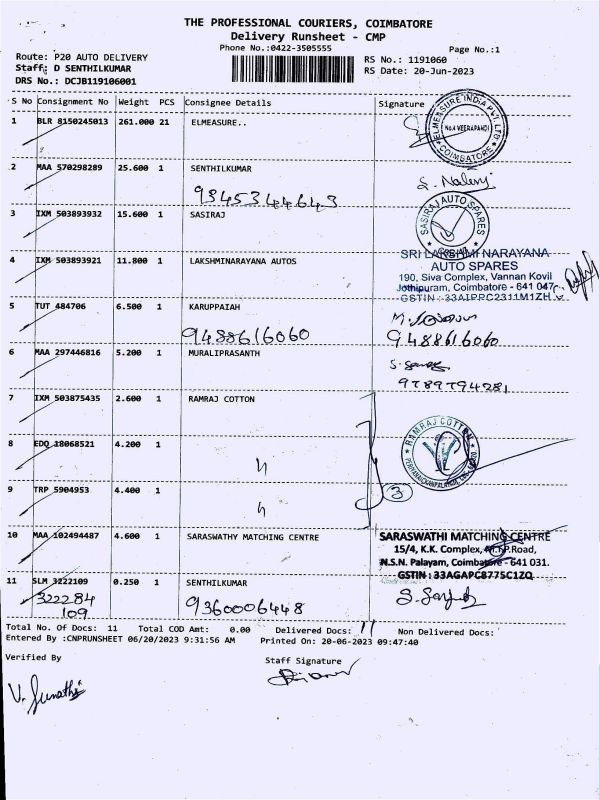 THE PROFESSIONAL COURIERS, COIMBATORE
Delivery Runsheet - CMP
Phone No.:0422-3505555 Page No.:1
Route: P20 AUTO DELIVERY RS No.: 1191060
Staff: D SENTHILKUMAR RS Date: 20-Jun-2023
DRS No.: DCJB119106001
S No Consignment No Weight PCS Consignee Details Signature
1 BLR 8150245013 261.000 21 ELMEASURE..
ELMEASURE INDIA PVT. LTD.
COIMBATORE
2 MAA 570298289 25.600 1 SENTHILKUMAR
9345344643
3 IXM 503893932 15.600 1 SASIRAJ
SASIRAJ AUTO SPARES
4 IXM 503893921 11.800 1 LAKSHMINARAYANA AUTOS
SRI LAKSHMI NARAYANA
AUTO SPARES
190, Siva Complex, Vannan Kovil
Jothipuram, Coimbatore - 641 047
GSTIN : 33AIPPC2311M1ZH
5 TUT 484706 6.500 1 KARUPPAIAH
9488616060 9488616060
6 MAA 297446816 5.200 1 MURALIPRASANTH
9789794281
7 IXM 503875435 2.600 1 RAMRAJ COTTON
RAMRAJ COTTON
8 EDQ 18068521 4.200 1 "
9 TRP 5904953 4.400 1 "
3
10 MAA 102494487 4.600 1 SARASWATHY MATCHING CENTRE
SARASWATHI MATCHING CENTRE
15/4, K.K. Complex, Road,
N.S.N. Palayam, Coimbatore - 641 031.
GSTIN : 33AGAPC8775C1ZQ
11 SLM 3222109 0.250 1 SENTHILKUMAR
322284 9360006448
109
Total No. Of Docs: 11 Total COD Amt: 0.00 Delivered Docs: 11 Non Delivered Docs:
Entered By :CNPRUNSHEET 06/20/2023 9:31:56 AM Printed On: 20-06-2023 09:47:40
Verified By Staff Signature